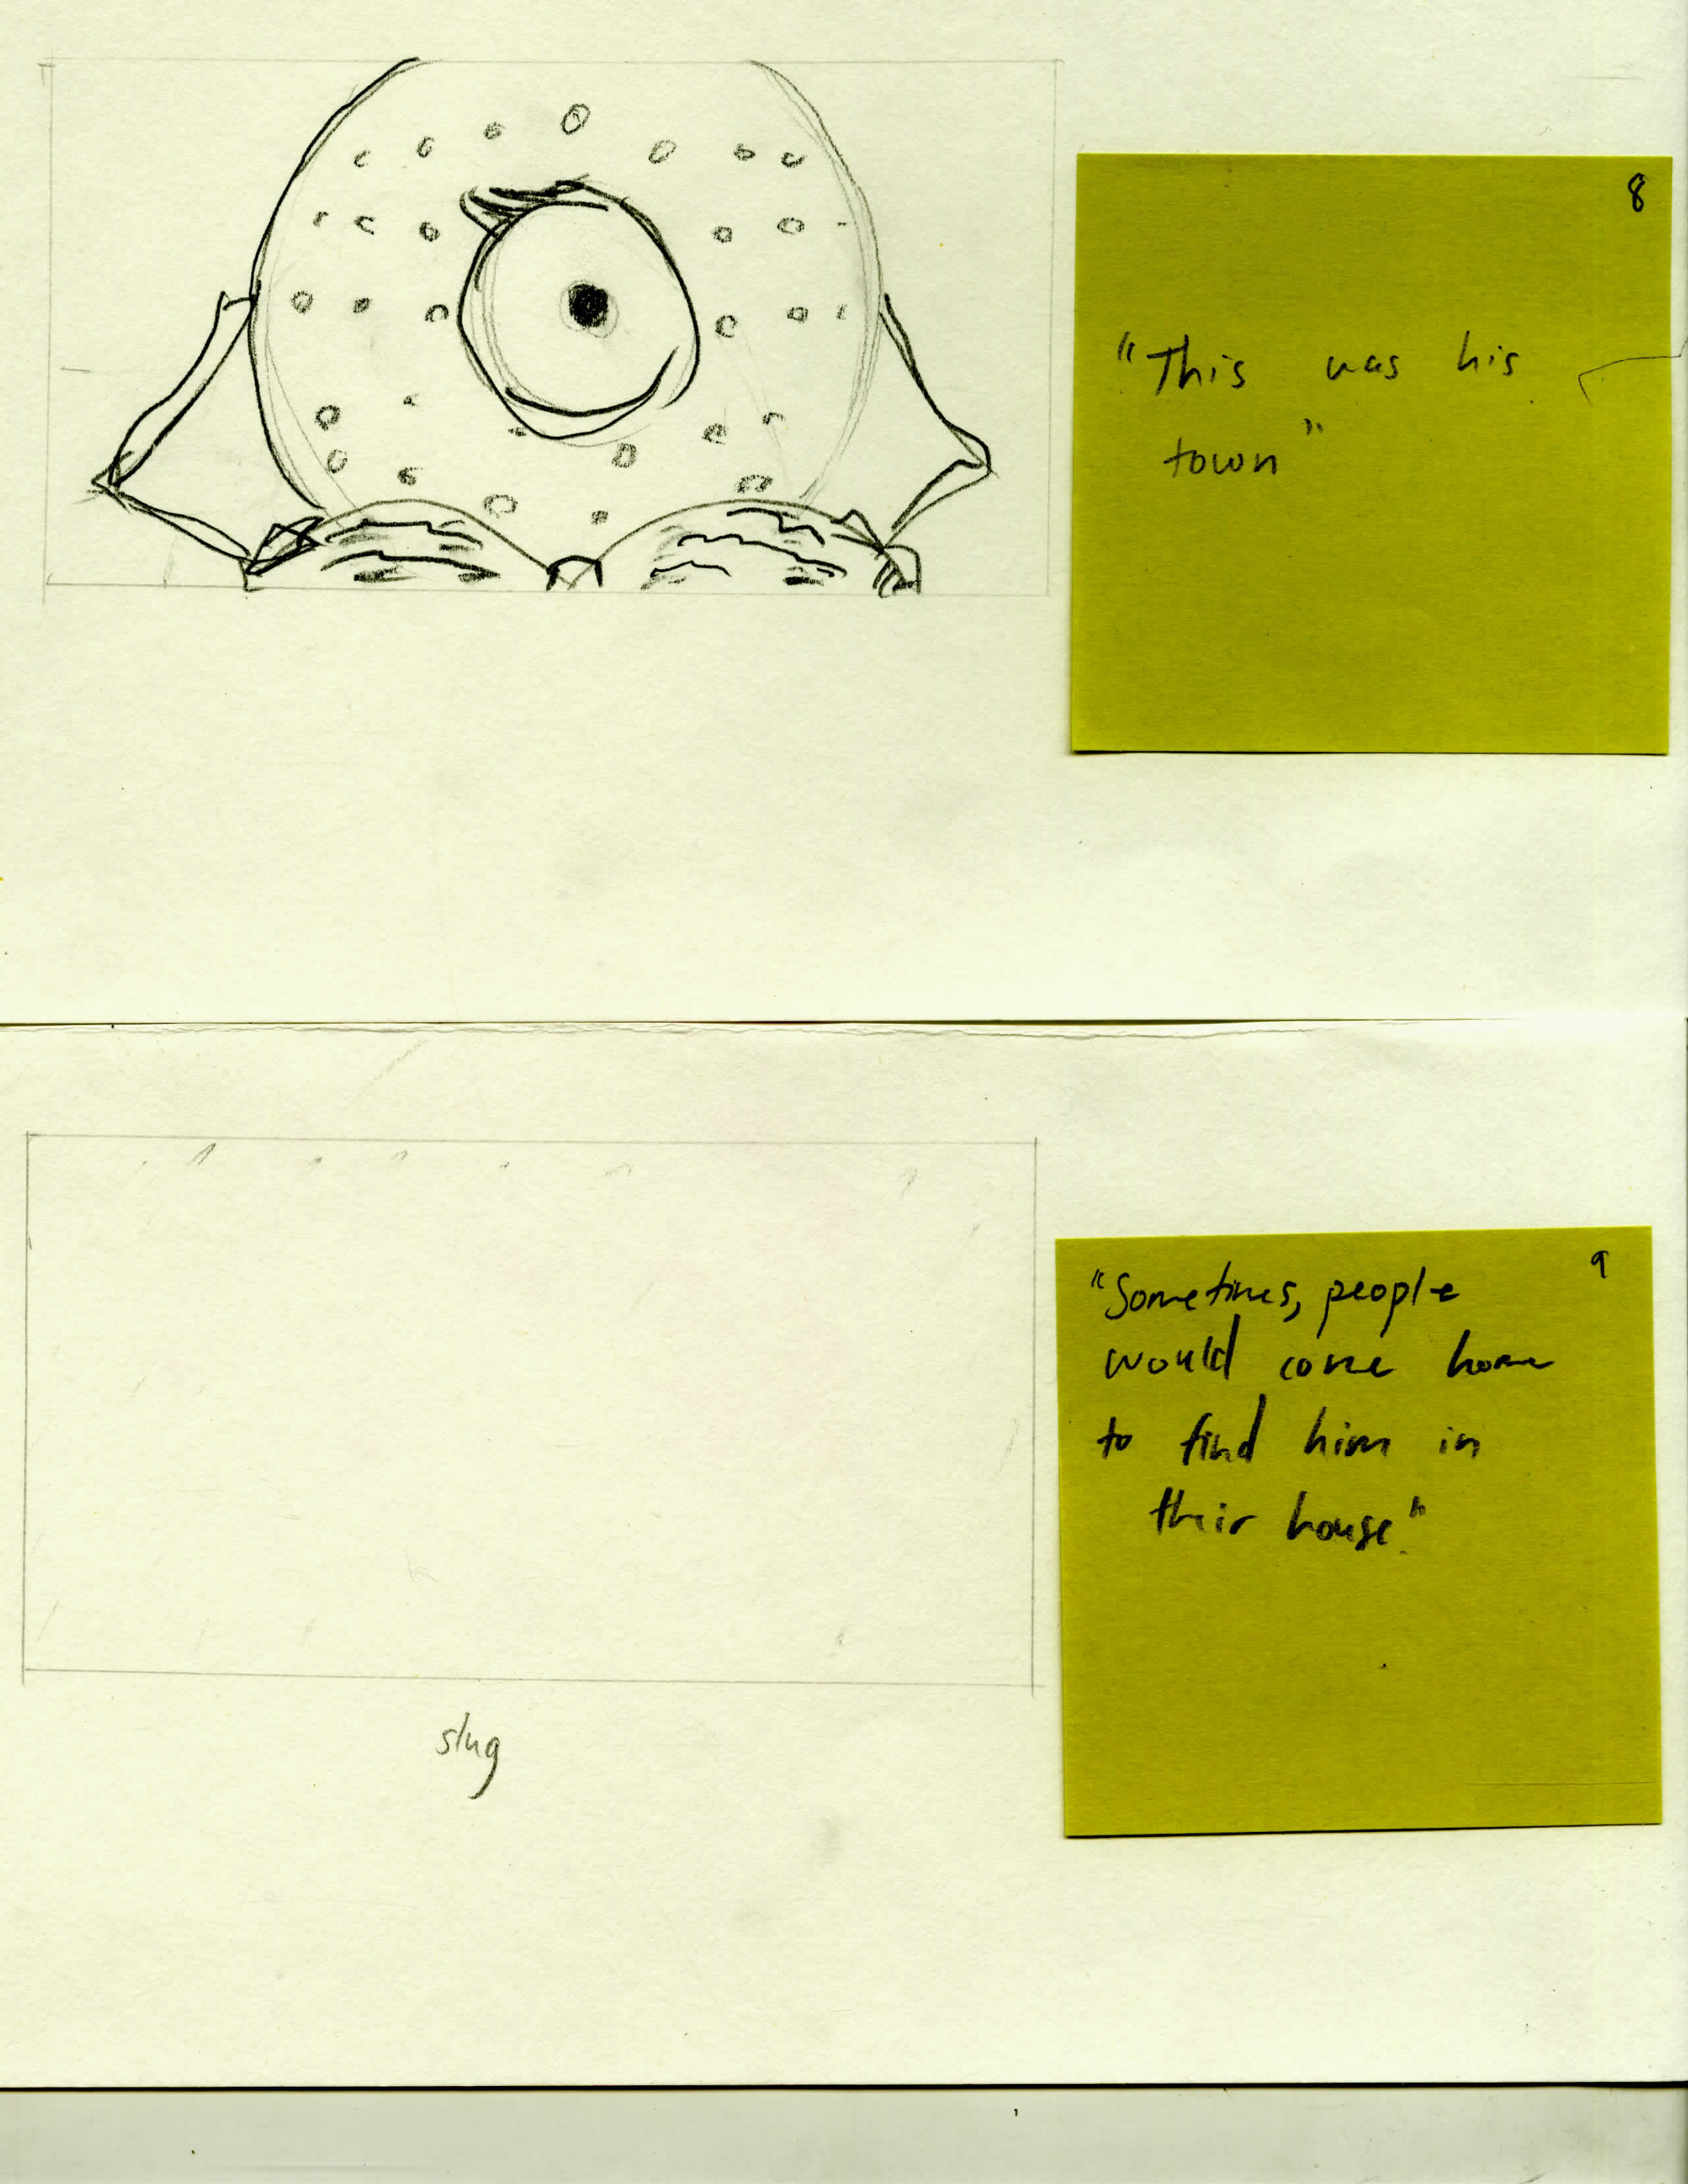 8
"This was his
town"
9
"Sometimes, people
would come home
to find him in
their house".
slug